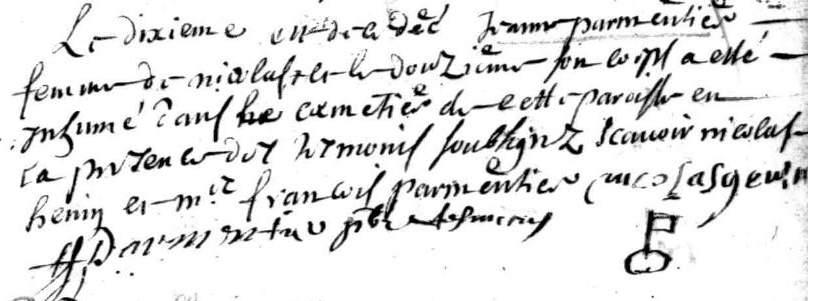 Le dixieme est decedeé Jeanne parmentier
femme de nicolas et le douzieme son corps a esté
Inhumé dans le cemetier de cette paroisse en
la presence des temoins soubsignez scavoir nicolas
henin et m.re francois parmentier nicolas
ff parmentier pbr